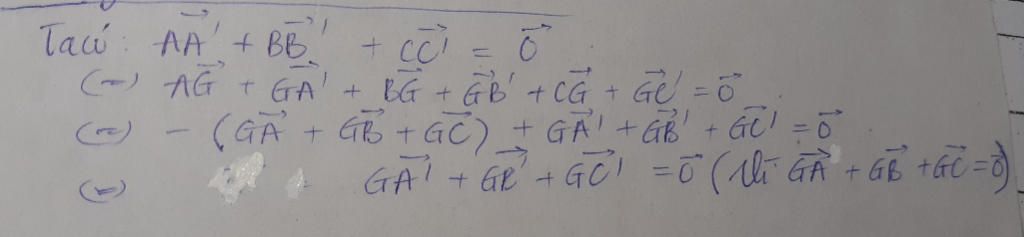 Ta có: AA'→ + BB'→ + CC'→ = 0→
(=) AG→ + GA'→ + BG→ + GB'→ + CG→ + GC'→ = 0→
(=) - (GA→ + GB→ + GC→) + GA'→ + GB'→ + GC'→ = 0→
(=) GA'→ + GB'→ + GC'→ = 0→ (Vì GA→ + GB→ + GC→ = 0→)